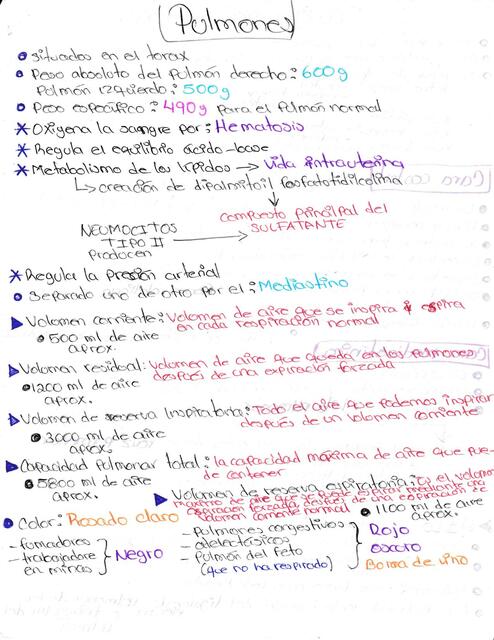 Pulmones
situados en el torax
Peso absoluto del Pulmón derecho: 600g
Pulmón izquierdo: 500g
Peso específico: 490g para el Pulmón normal
Oxigena la sangre por: Hematosis
Regula el equilibrio ácido-base
Metabolismo de los lípidos → vida intrauterina
↳ creación de dipalmitoil fosfatotidilcolina
compuesto principal del
SULFATANTE
NEUMOCITOS
TIPO II
Producen
Regula la presión arterial
separado uno de otro por el: Mediastino
Volumen corriente: Volumen de aire que se inspira y espira
en cada respiración normal
500 ml de aire
aprox.
Volumen residual: Volumen de aire que queda en los pulmones
después de una expiración forzada
1200 ml de aire
aprox.
Volumen de reserva Inspiratoria: Todo el aire que podemos inspirar
después de un volumen corriente
3000 ml de aire
aprox.
Capacidad pulmonar total: la capacidad máxima de aire que pue-
de contener
5800 ml de aire
aprox.
Volumen de reserva expiratoria: es el volumen
máximo de aire que se puede espirar mediante una
espiración forzada, después de una espiración de
volumen corriente normal
1100 ml de aire
aprox.
Color: Rosado claro
- fumadores
- trabajadore
en minas
Negro
- Pulmones congestivos
- atelectásicos
- Pulmón del feto
(que no ha respirado)
Rojo
oscuro
Borra de vino